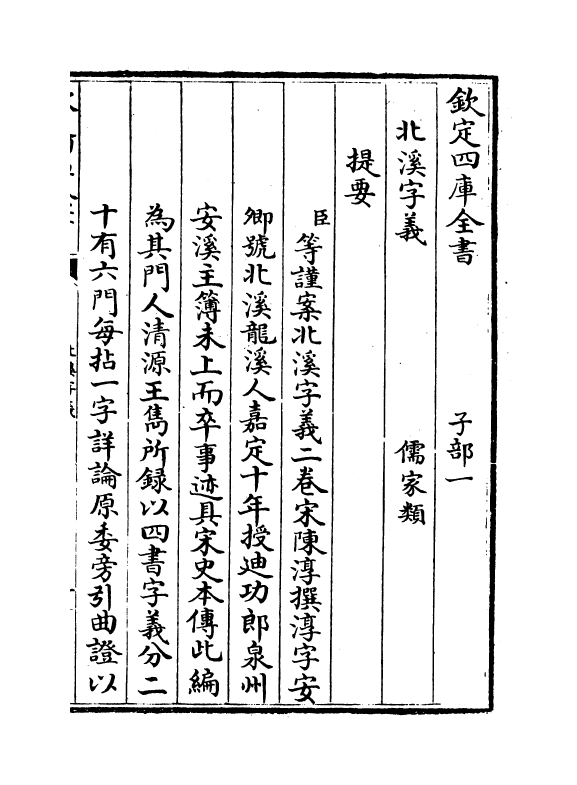 欽定四庫全書　子部一
北溪字義　儒家類
提要
臣等謹案北溪字義二卷宋陳淳撰淳字安
卿號北溪龍溪人嘉定十年授迪功郎泉州
安溪主簿未上而卒事迹具宋史本傳此編
為其門人清源王雋所録以四書字義分二
十有六門每拈一字詳論原委旁引曲證以